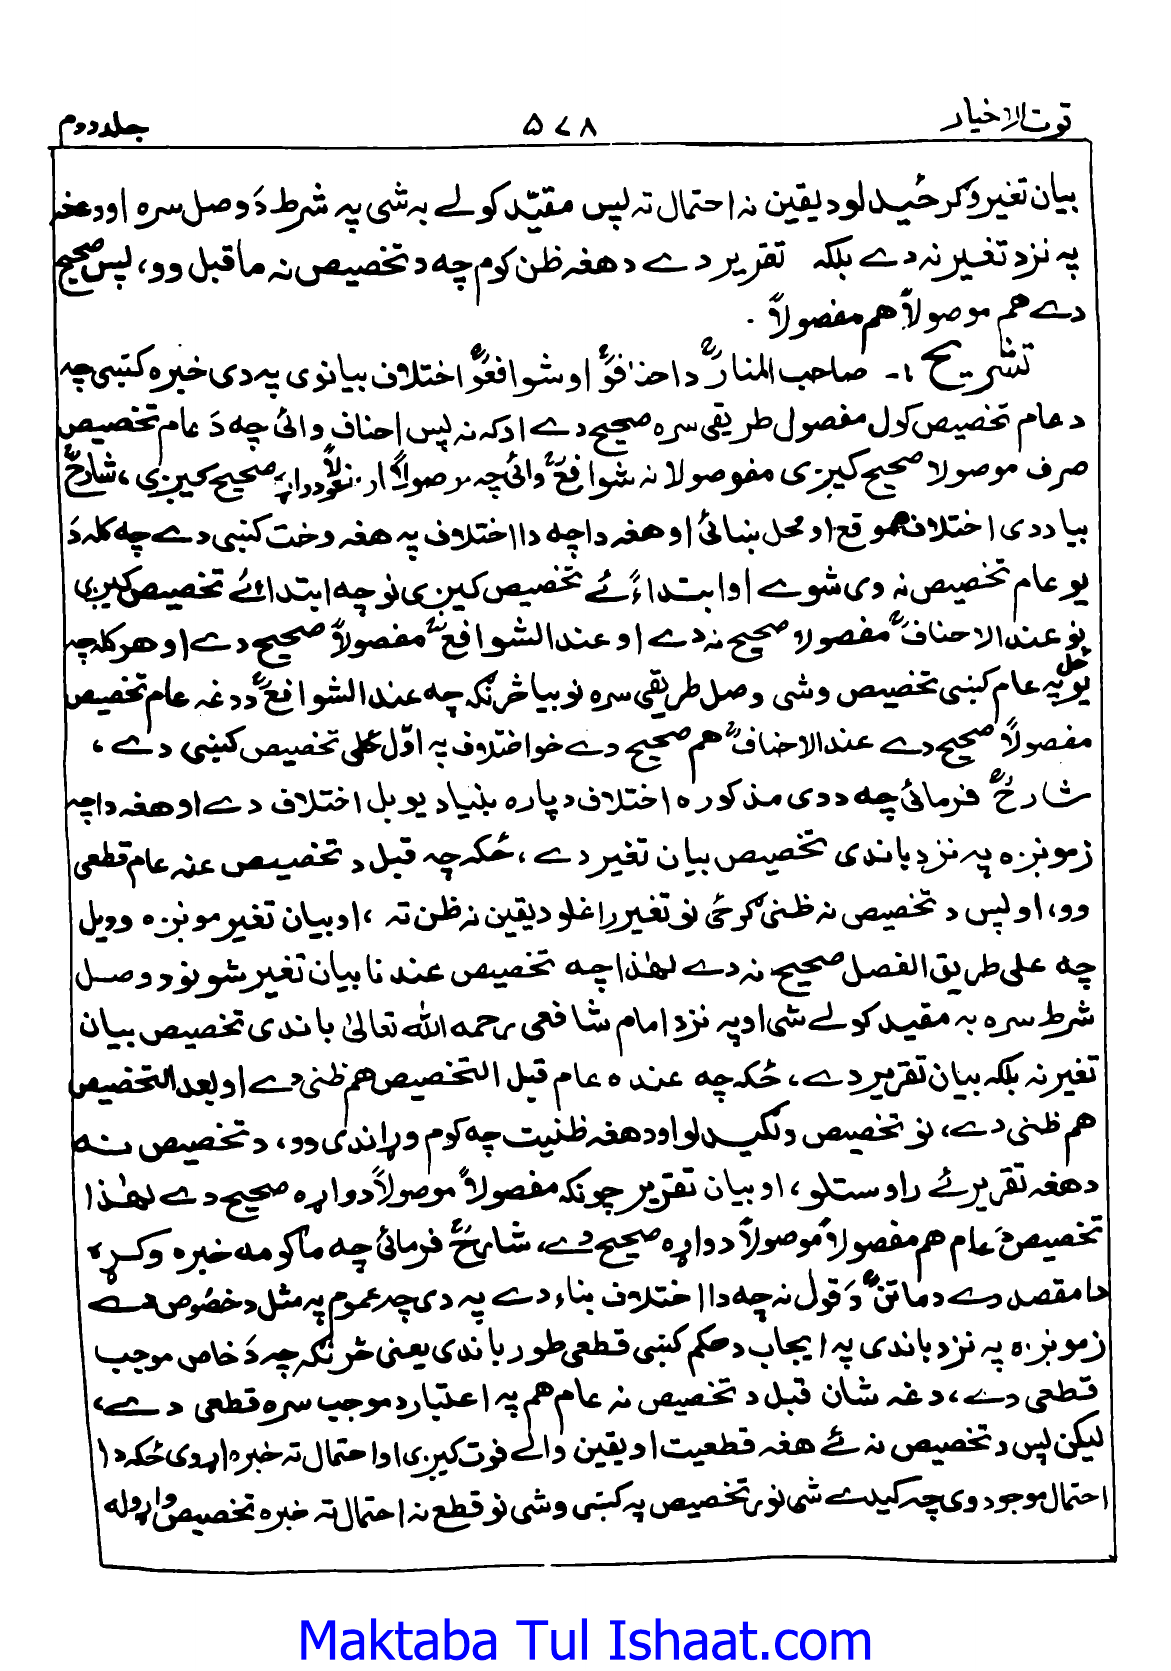 قوت الاخیار ۵۷۸ جلد دوم
بیان تغیر وګرځیدلو د یقین نه احتمال ته پس مقیّد کولے به شی په شرط دَ وصل سره او د هغه
په نزد تغیر نه دے بلکه تقریر دے د هغه ظن کوم چه د تخصیص نه ما قبل وو، پس صحیح
دے هم موصولاً هم مفصولاً .
تشریح ۱- صاحب المنارؒ د احنافوؒ او شوافعوؒ اختلاف بیانوی په دی خبره کښی چه
د عام تخصیص کول مفصول طریقی سره صحیح دے او که نه پس احناف وائی چه دَ عام تخصیص
صرف موصولا صحیح کیږی مفوصولا نه شوافعؒ وائی چه موصولاً او مفصولاً دواړه صحیح کیږی، شارحؒ
بیا د دی اختلاف موقع او محل ښائی او هغه دا چه دا اختلاف په هغه وخت کښی دے چه کله دَ
یو عام تخصیص نه وی شوے او ابتداءً ئے تخصیص کیږی نو چه ابتداء ئے تخصیص کیږی
نو عند الاحنافؒ مفصولا صحیح نه دے او عند الشوافعؒ مفصولاً صحیح دے او هر کله چه
یو ځل په عام کښی تخصیص وشی وصل طریقی سره نو بیا څرنګه چه عند الشوافعؒ د دغه عام تخصیص
مفصولاً صحیح دے عند الاحنافؒ هم صحیح دے خو اختلاف په اوّل ځلی تخصیص کښی دے،
شارحؒ فرمائی چه د دی مذکوره اختلاف دپاره بنیاد یو بل اختلاف دے او هغه دا چه
زمونږه په نزد باندی تخصیص بیان تغیر دے، ځکه چه قبل د تخصیص عنه عام قطعی
وو، او پس د تخصیص نه ظنی ګرځی نو تغیر راغلو د یقین نه ظن ته ، او بیان تغیر مونږه وویل
چه علی طریق الفصل صحیح نه دے لهٰذا چه تخصیص عندنا بیان تغیر شو نو د وصل
شرط سره به مقید کولے شی او په نزد امام شافعی رحمه الله تعالیٰ باندی تخصیص بیان
تغیر نه بلکه بیان تقریر دے، ځکه چه عنده عام قبل التخصیص هم ظنی دے او بعد التخصیص
هم ظنی دے، نو تخصیص د لګیدلو او د هغه ظنیت چه کوم وړاندی وو، د تخصیص نه
د هغه تقریر ئے راوستلو، او بیان تقریر چونکه مفصولاً موصولاً دواړه صحیح دے لهٰذا
تخصیص دَ عام هم مفصولاً موصولاً دواړه صحیح دے، شارحؒ فرمائی چه ما کومه خبره وکړه
دا مقصد دے د ماتنؒ دَ قول نه چه دا اختلاف بناء دے په دی چه عموم په مثل د خصوص دے
زمونږه په نزد باندی په ایجاب د حکم کښی قطعی طور باندی یعنی څرنګه چه دَ خاص موجب
قطعی دے، دغه شان قبل د تخصیص نه عام هم په اعتبار د موجب سره قطعی دے،
لیکن پس د تخصیص نه ئے هغه قطعیت او یقین والے فوت کیږی او احتمال ته خبره اړوی ځکه دا
احتمال موجود وی چه کیدے شی نور تخصیص په کښی وشی نو قطع نه احتمال ته خبره تخصیص واړوله
Maktaba Tul Ishaat.com